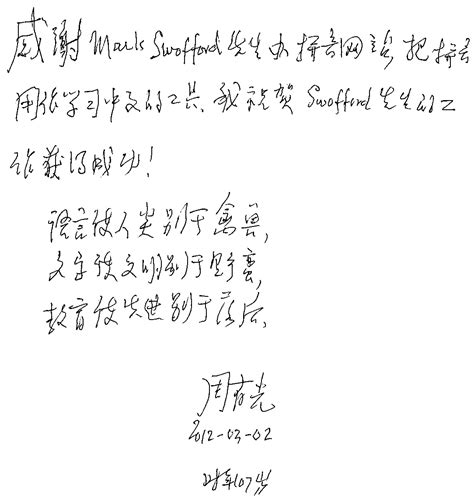 感謝 Mark Swofford 先生办拼音网站, 把拼音
用作学习中文的工具. 我祝贺 Swofford 先生的工
作获得成功!
语言使人类别于禽兽,
文字使文明别于野蛮,
教育使先进别于落后.
周有光
2012-03-02
时年107岁